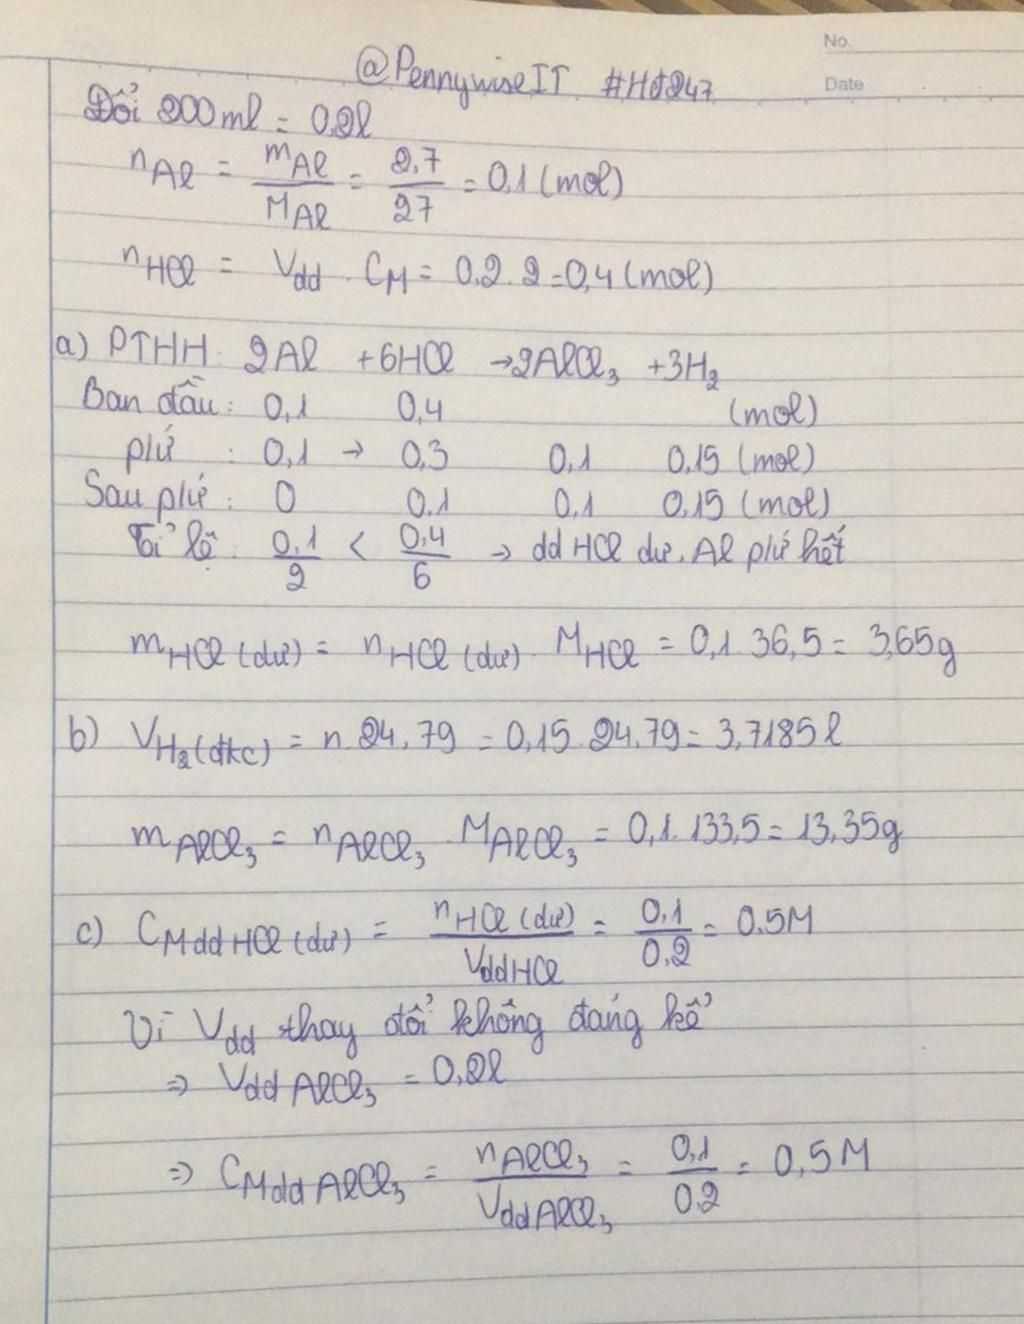 No.
@PennywiseIT #HĐ247
Date
Đổi 200ml = 0,2l
nAl = mAl/MAl = 2,7/27 = 0,1 (mol)
nHCl = Vdd . CM = 0.2.2 = 0,4 (mol)
a) PTHH: 2Al + 6HCl → 2AlCl3 + 3H2
Ban đầu: 0,1 0,4 (mol)
phứ : 0,1 → 0,3 0,1 0,15 (mol)
Sau phứ: 0 0,1 0,1 0,15 (mol)
Tỉ lệ: 0,1/2 < 0,4/6 → dd HCl dư, Al phứ hết
mHCl (dư) = nHCl (dư) . MHCl = 0,1.36,5 = 3,65g
b) VH2(đkc) = n.24,79 = 0,15.24,79 = 3,7185l
mAlCl3 = nAlCl3 . MAlCl3 = 0,1.133,5 = 13,35g
c) CM dd HCl (dư) = nHCl (dư)/VddHCl = 0,1/0,2 = 0.5M
Vì Vdd thay đổi không đáng kể
⇒ Vdd AlCl3 = 0,2l
⇒ CM dd AlCl3 = nAlCl3/VddAlCl3 = 0,1/0.2 = 0,5M